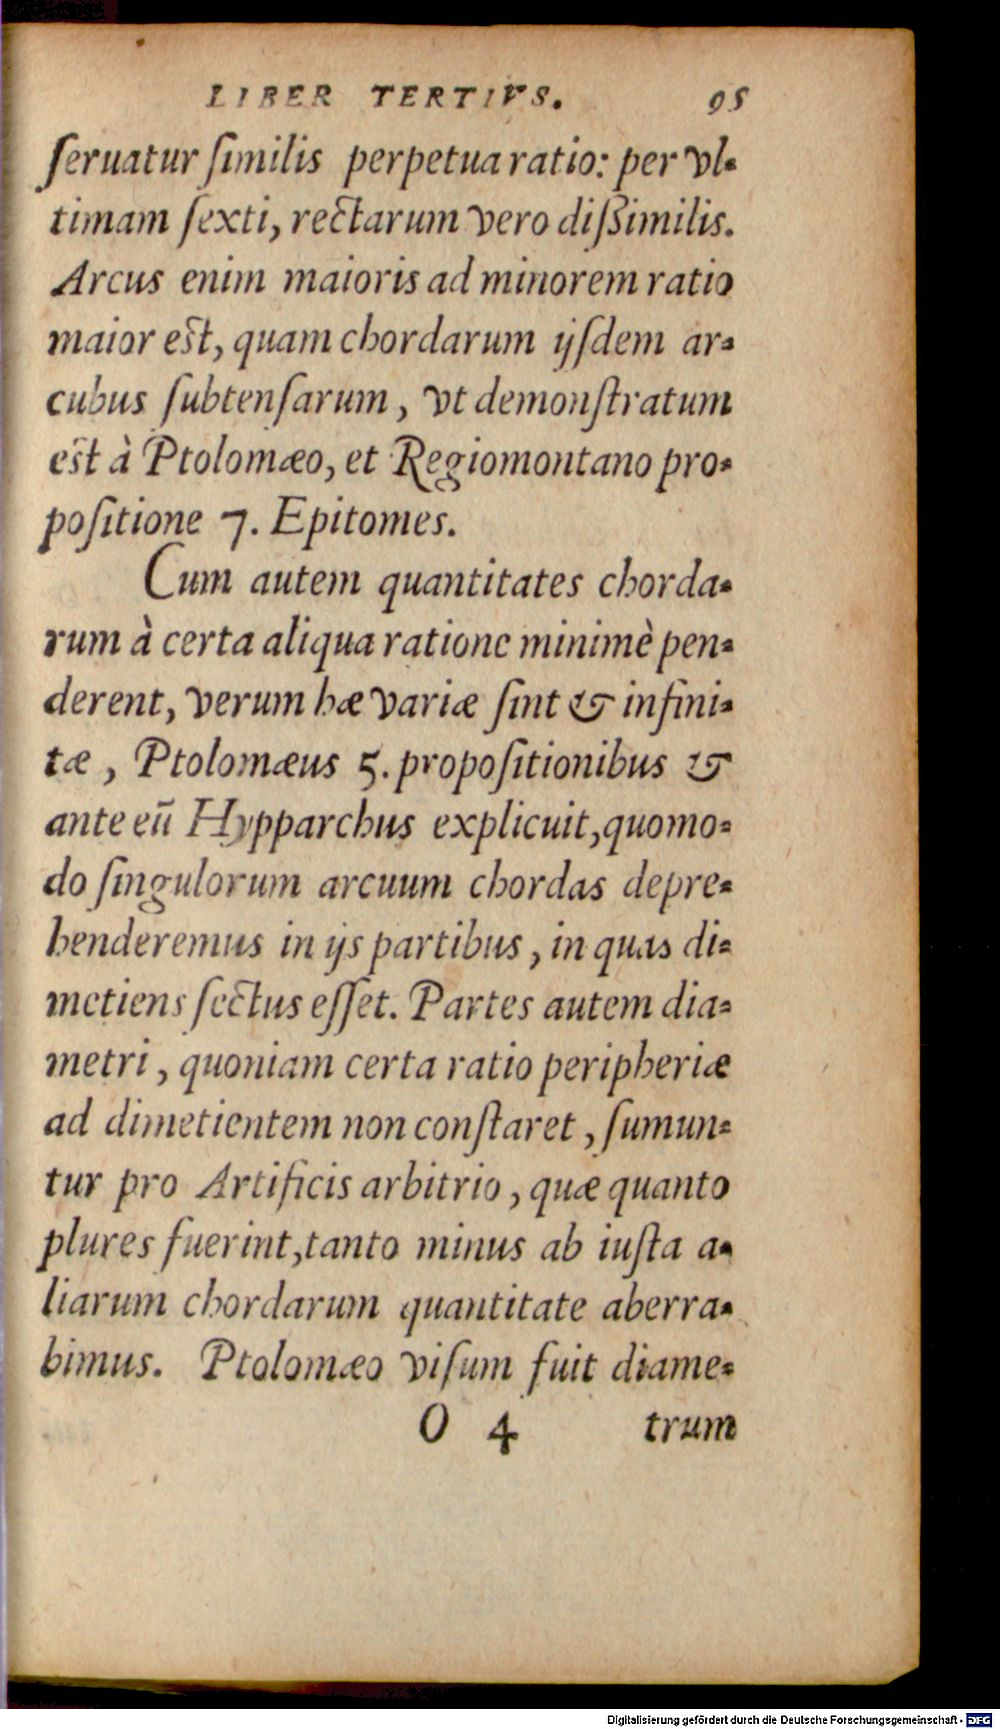 LIBER TERTIVS. 95
ſeruatur ſimilis perpetua ratio: per vl-
timam ſexti, rectarum vero diſsimilis.
Arcus enim maioris ad minorem ratio
maior est, quam chordarum ijſdem ar-
cubus ſubtenſarum, vt demonſtratum
est à Ptolomæo, et Regiomontano pro-
poſitione 7. Epitomes.
Cum autem quantitates chorda-
rum à certa aliqua ratione minimè pen-
derent, verum hæ variæ ſint & infini-
tæ, Ptolomæus 5. propoſitionibus &
ante eū Hypparchus explicuit, quomo-
do ſingulorum arcuum chordas depre-
henderemus in ijs partibus, in quas di-
metiens ſectus eſſet. Partes autem dia-
metri, quoniam certa ratio peripheriæ
ad dimetientem non conſtaret, ſumun-
tur pro Artificis arbitrio, quæ quanto
plures fuerint, tanto minus ab iuſta a-
liarum chordarum quantitate aberra-
bimus. Ptolomæo viſum fuit diame-
O 4 trum
Digitalisierung gefördert durch die Deutsche Forschungsgemeinschaft - DFG